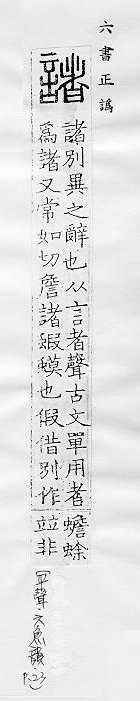 六書正譌
諸
諸別異之辭也从言者聲古文單用者
爲諸又常如切詹諸蝦蟆也假借別作
蟾蜍
竝非
平聲·六魚韻
P.23